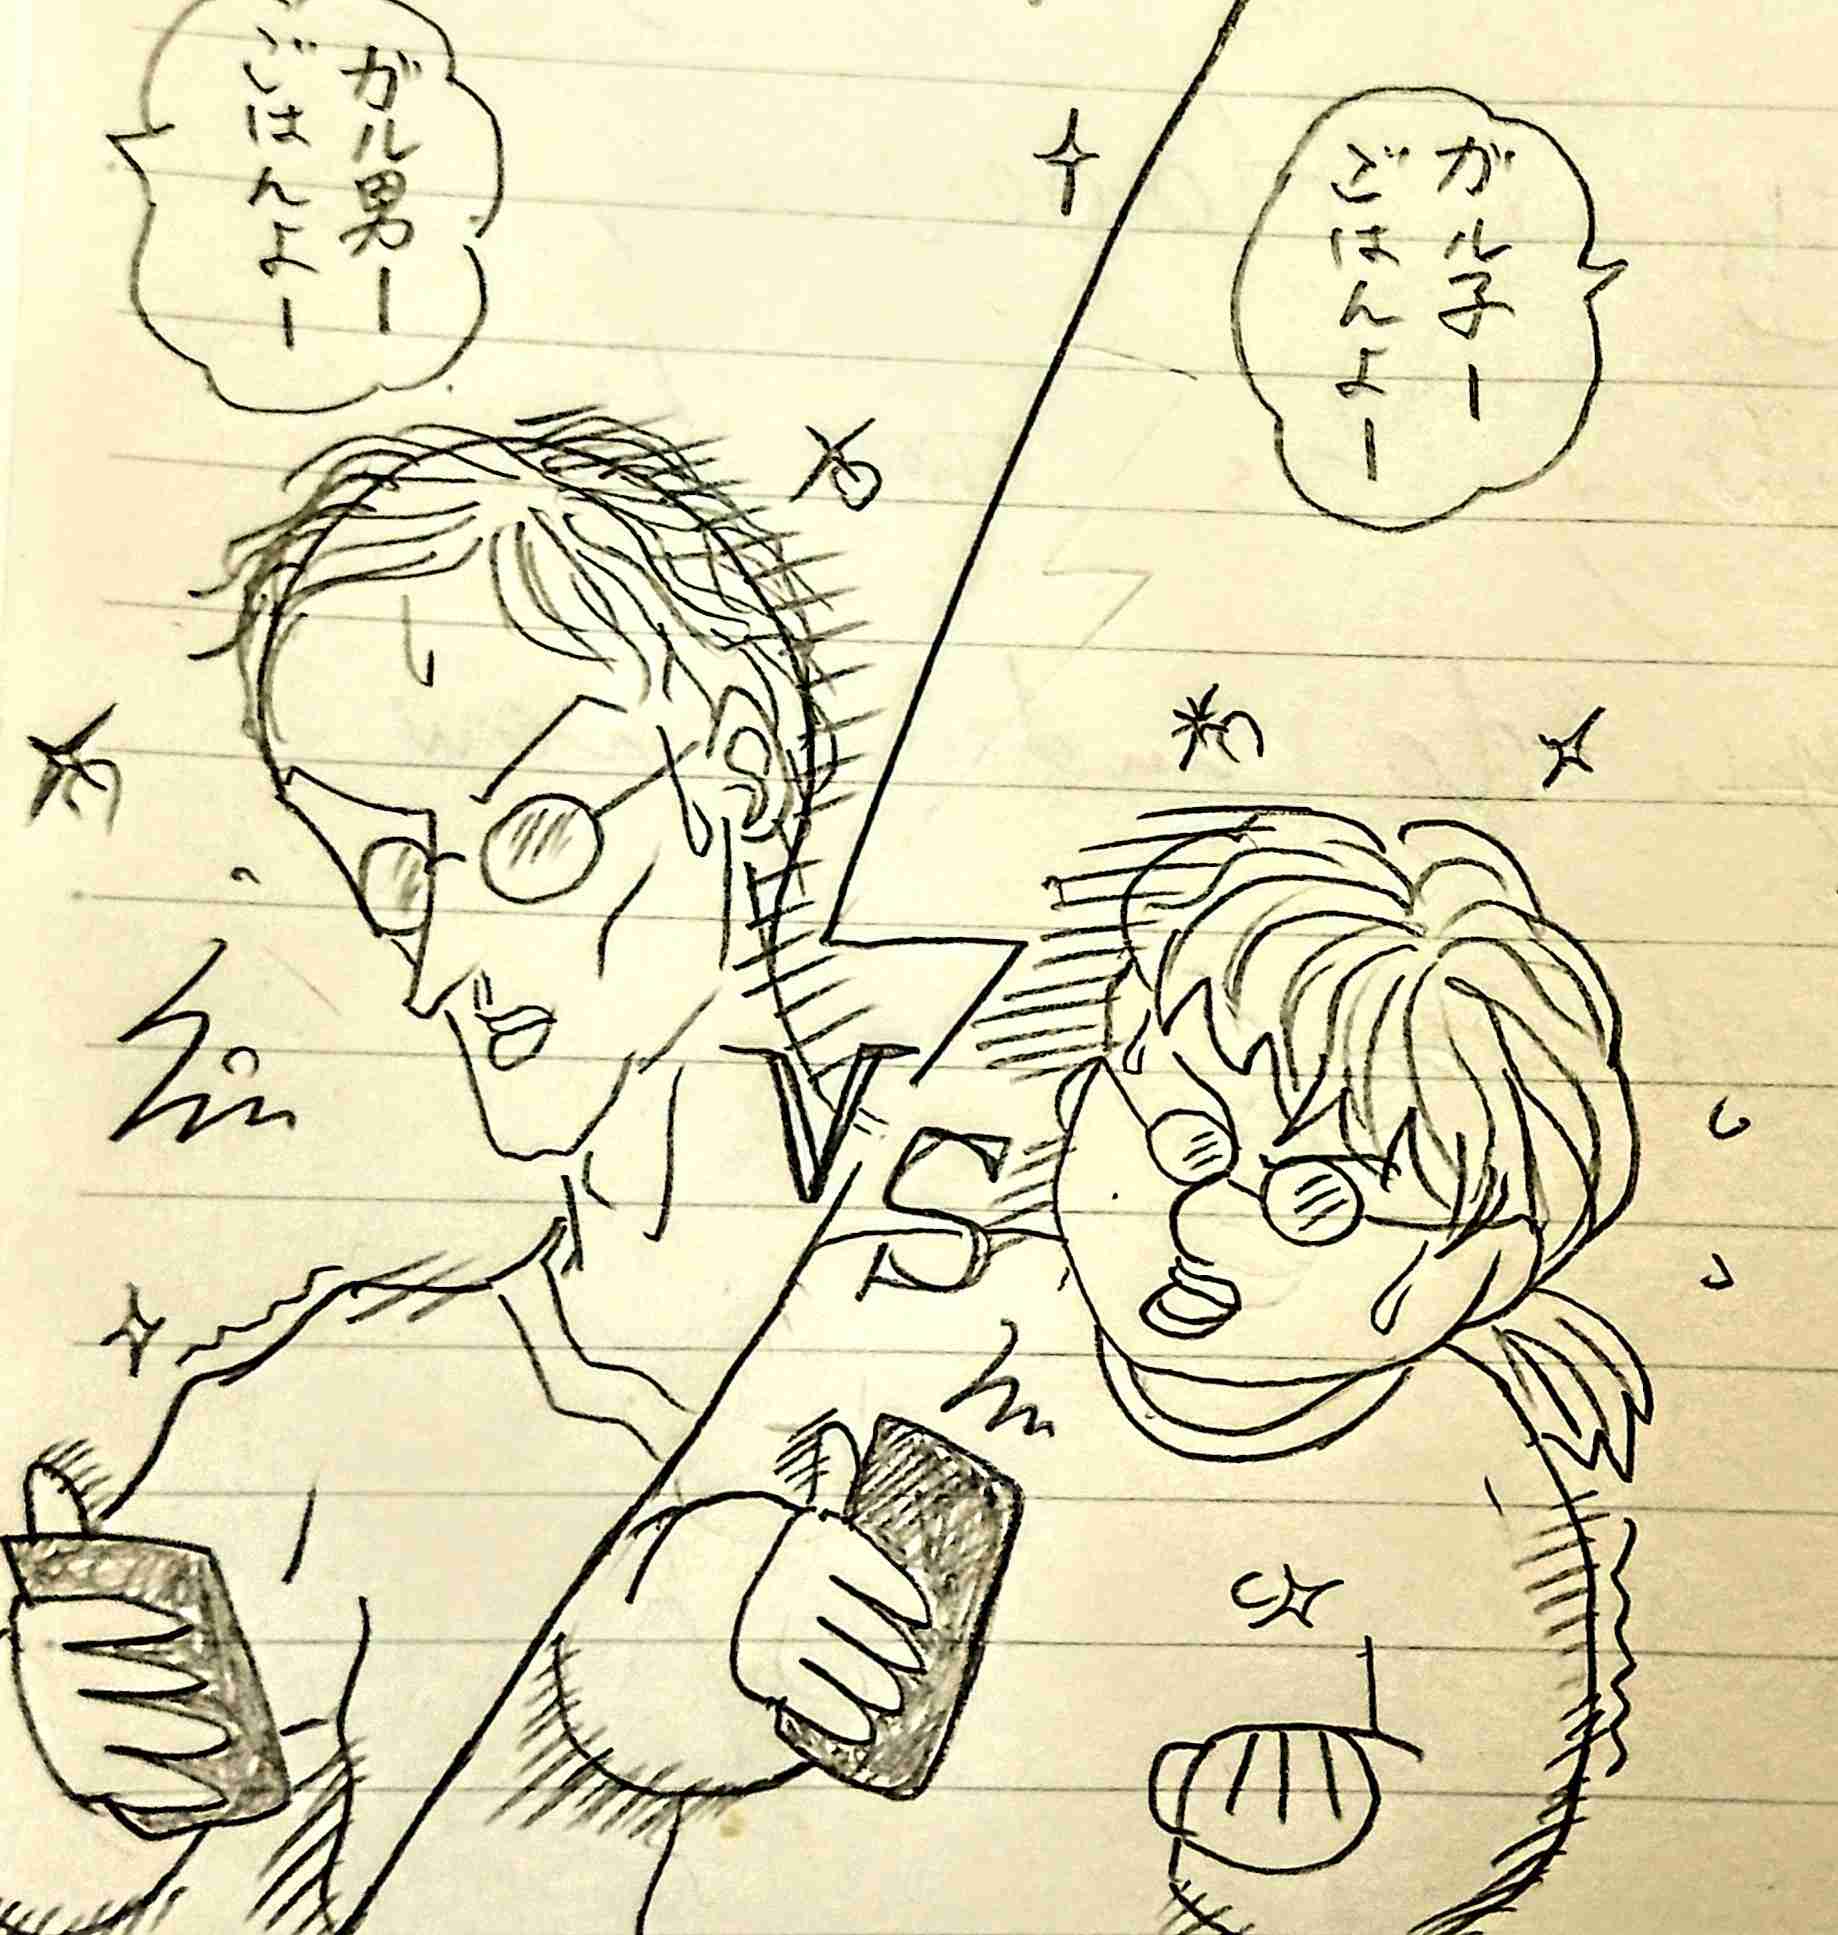 ガル子ー
ごはんよー
ガル男ー
ごはんよー
VS